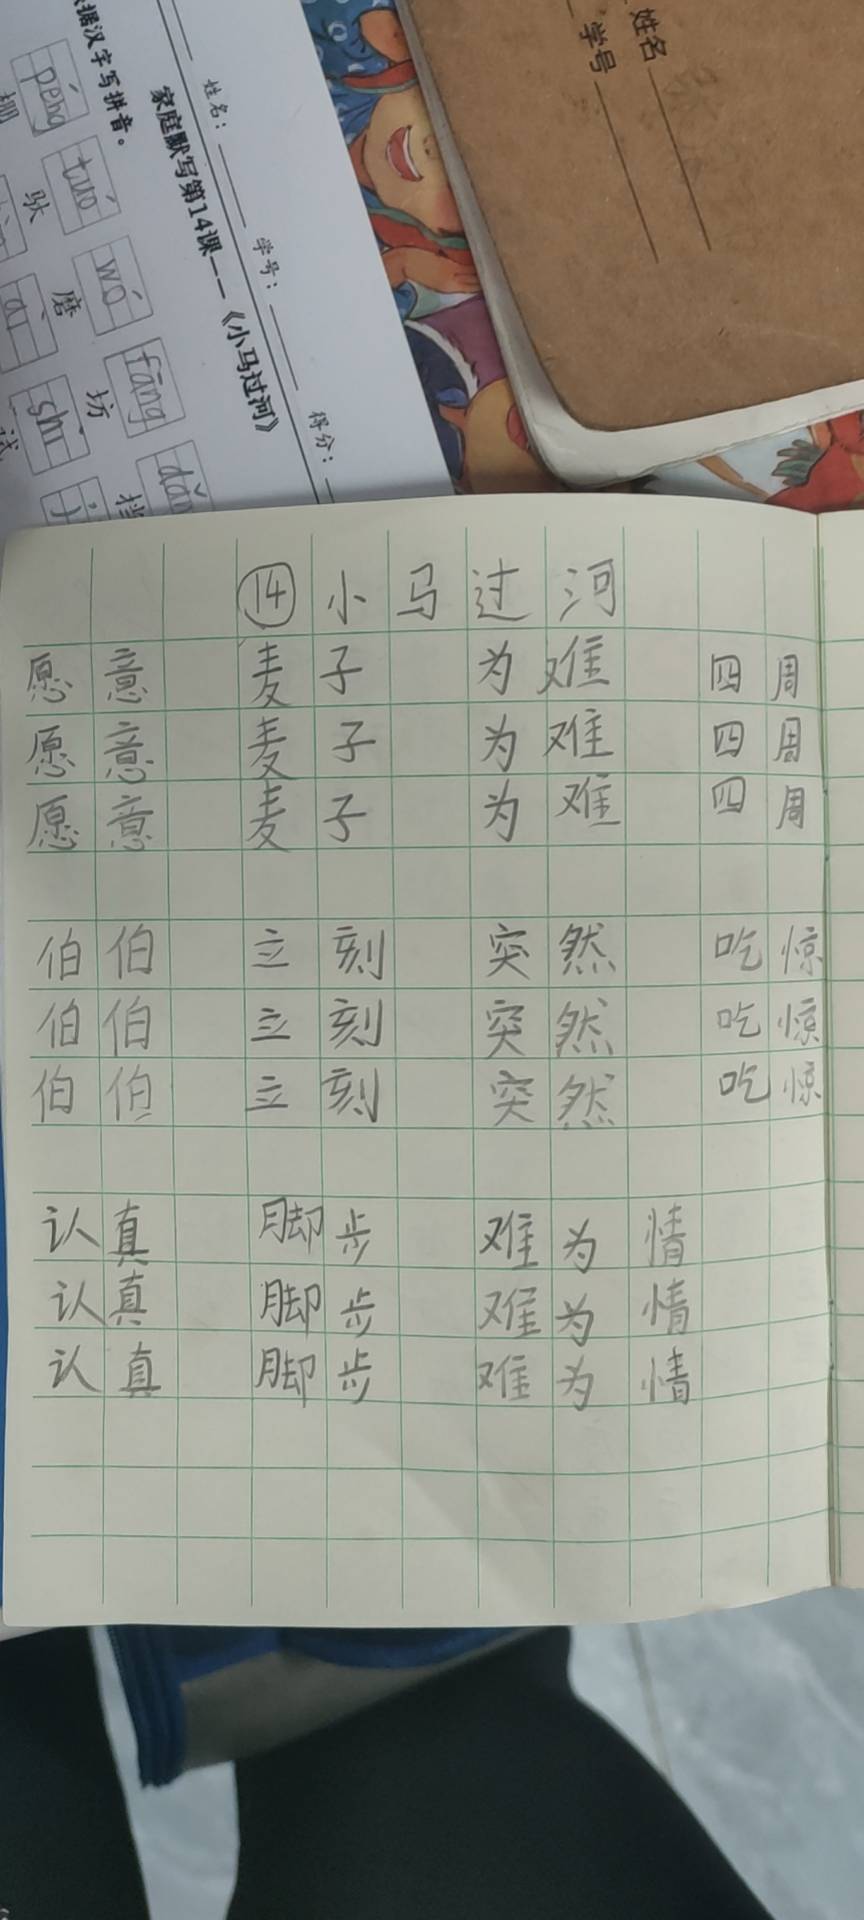 姓名
学号
姓名：
学号：
得分：
家庭默写第14课——《小马过河》
据汉字写拼音。
péng tuó wò fāng dǎn
棚 驮 磨 坊 挡
ài shì
试
⑭小马过河
愿意 麦子 为难 四周
愿意 麦子 为难 四周
愿意 麦子 为难 四周
伯伯 立刻 突然 吃惊
伯伯 立刻 突然 吃惊
伯伯 立刻 突然 吃惊
认真 脚步 难为情
认真 脚步 难为情
认真 脚步 难为情